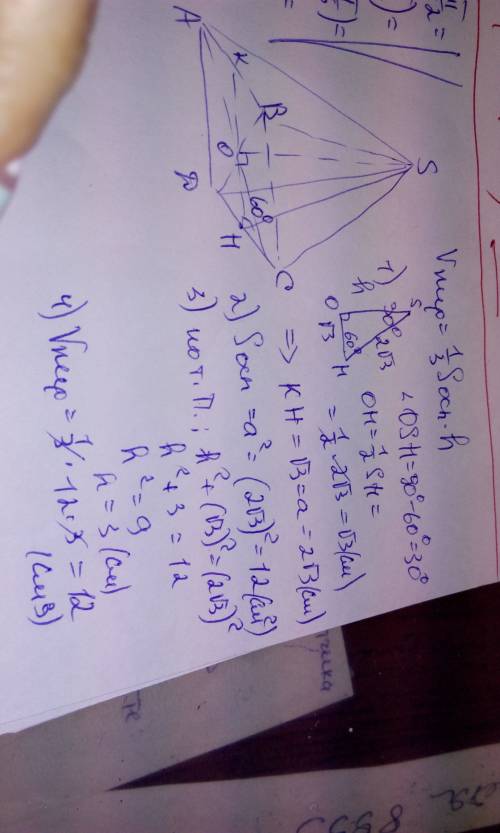 π/2 =
) =
/5) =
=
A
K
B
S
O
h
60°
D
H
C
Vпир = 1/3 Sосн · h
1) S
30°
h
2√3
60°
O √3 H
∠OSH = 90° - 60° = 30°
OH = 1/2 SH =
= 1/2 · 2√3 = √3 (см)
=> KH = √3 = a = 2√3 (см)
2) Sосн = a² = (2√3)² = 12 (см²)
3) по т. П.; h² + (√3)² = (2√3)²
h² + 3 = 12
h² = 9
h = 3 (см)
4) Vпир = 1/3 · 12 · 3 = 12
(см3)